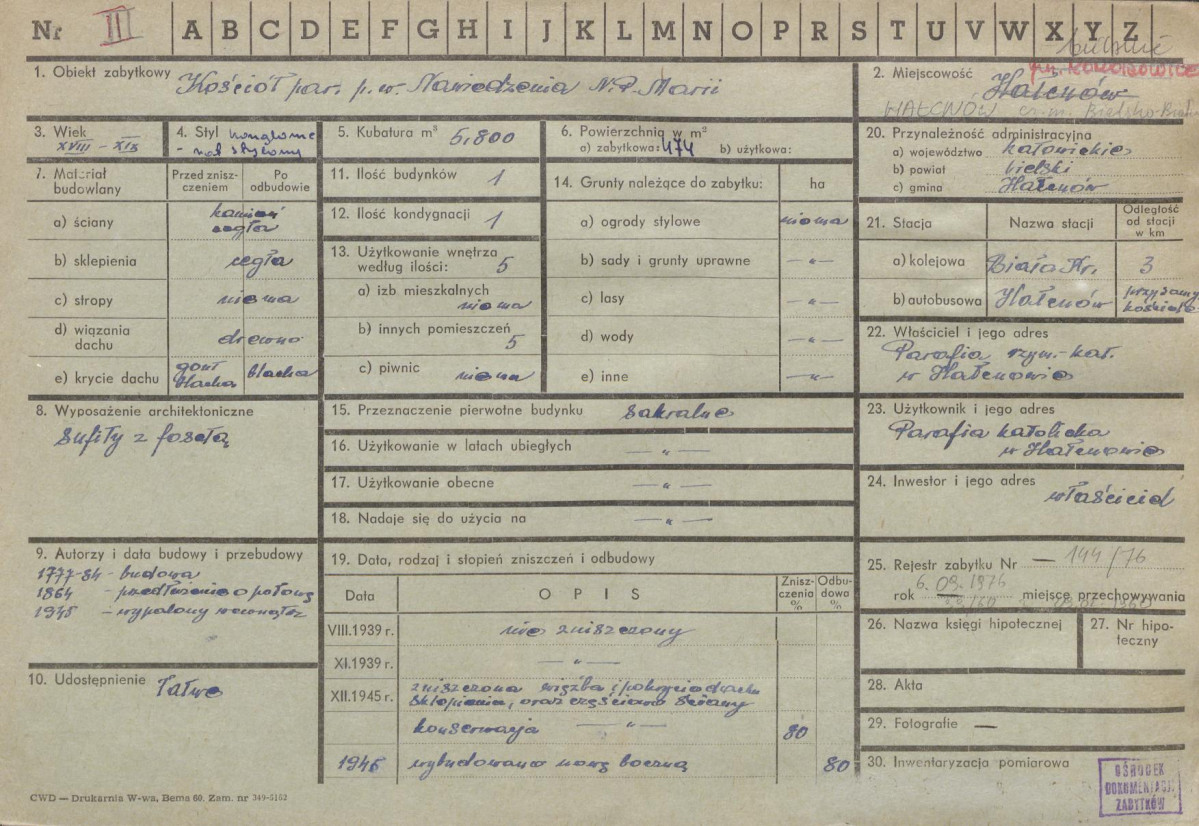 Nr III A B C D E F G H I J K L M N O P R S T U V W X Y Z
1. Obiekt zabytkowy Kościół par. p.w. Nawiedzenia N.P. Marii
2. Miejscowość Hałcnów
HAŁCNÓW
3. Wiek
XVIII – XIX
4. Styl konglome
- rat stylowy
5. Kubatura m³ 5,800
6. Powierzchnia w m²
a) zabytkowa: 474 b) użytkowa:
7. Materiał budowlany
Przed zniszczeniem
Po odbudowie
a) ściany kamień
cegła
b) sklepienia cegła
c) stropy niema
d) wiązania dachu drewno
e) krycie dachu gont
blacha blacha
8. Wyposażenie architektoniczne
Sufity z fasetą
9. Autorzy i data budowy i przebudowy
1777-84 - budowa
1864 - przedłużenie o połowę
1945 - wypalony wewnątrz
10. Udostępnienie łatwe
11. Ilość budynków 1
12. Ilość kondygnacji 1
13. Użytkowanie wnętrza
według ilości: 5
a) izb mieszkalnych
niema
b) innych pomieszczeń
5
c) piwnic niema
14. Grunty należące do zabytku: ha
a) ogrody stylowe niema
b) sady i grunty uprawne -„-
c) lasy -„-
d) wody -„-
e) inne -„-
15. Przeznaczenie pierwotne budynku sakralne
16. Użytkowanie w latach ubiegłych -„-
17. Użytkowanie obecne -„-
18. Nadaje się do użycia na -„-
19. Data, rodzaj i stopień zniszczeń i odbudowy
Data OPIS Zniszczenia % Odbudowa %
VIII.1939 r. nie zniszczony
XI.1939 r. -„-
XII.1945 r. zniszczona więźba i pokrycie dachu
sklepienia, oraz częściowo ściany
konserwacja -„- 80
1945 wybudowano nawę boczną 80
20. Przynależność administracyjna
a) województwo katowickie
b) powiat bielski
c) gmina Hałcnów
21. Stacja Nazwa stacji Odległość od stacji w km
a) kolejowa Biała Kr. 3
b) autobusowa Hałcnów przy samym
kościele
22. Właściciel i jego adres
Parafia rzym.-kat.
w Hałcnowie
23. Użytkownik i jego adres
Parafia katolicka
w Hałcnowie
24. Inwestor i jego adres
właściciel
25. Rejestr zabytku Nr — 144/76
rok 6.09.1976 miejsce przechowywania
26. Nazwa księgi hipotecznej
27. Nr hipoteczny
28. Akta
29. Fotografie —
30. Inwentaryzacja pomiarowa
OŚRODEK
DOKUMENTACJI
ZABYTKÓW
CWD — Drukarnia W-wa, Bema 60. Zam. nr 349-5162